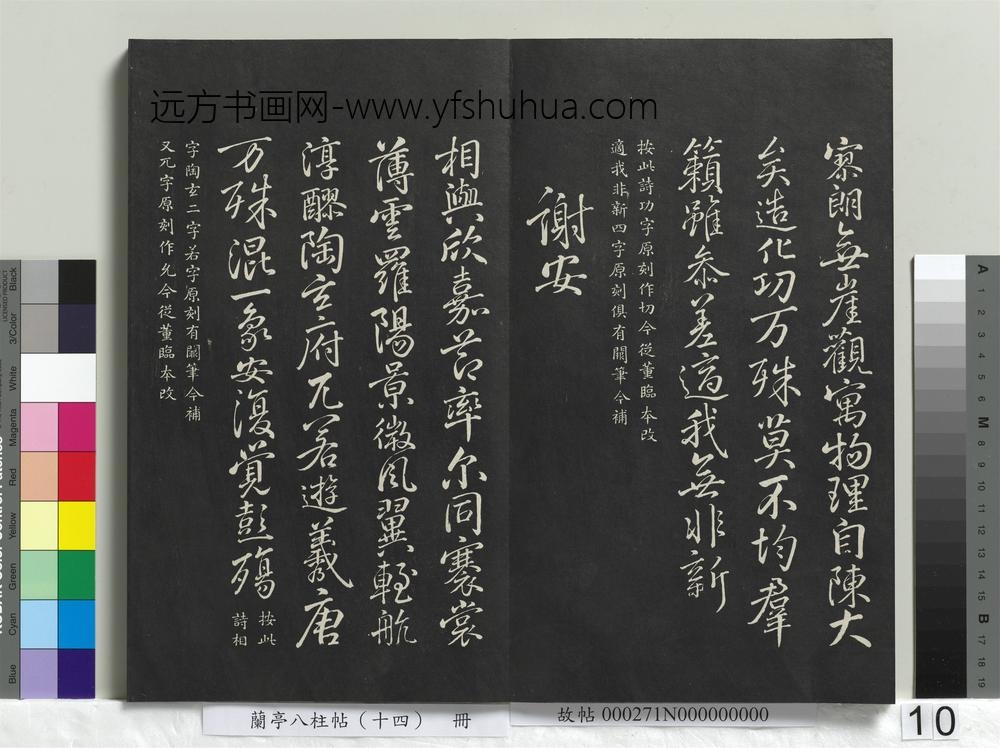 远方书画网-www.yfshuhua.com
寥朗無崖觀寓物理自陳大
矣造化功万殊莫不均羣
籟雖叅差適我無非新
按此詩功字原刻作切今從董臨本改
適我非新四字原刻俱有闕筆今補
謝安
相與欣嘉莭率尔同褰裳
薄雲羅陽景微風翼輕航
淳醪陶玄府兀若遊羲唐
万殊混一象安復覺彭殤
按此
詩相
字陶玄二字若字原刻有闕筆今補
又兀字原刻作允今從董臨本改
蘭亭八柱帖（十四） 冊
故帖 000271N000000000
10
Black
3/Color
White
Magenta
Red
Yellow
Green
Cyan
Blue
A
1
2
3
4
5
6
M
8
9
10
11
12
13
14
15
B
17
18
19